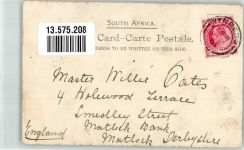 SOUTH AFRICA.
13.575.208
Card-Carte Postale.
ADDRESS TO BE WRITTEN ON THIS SIDE.
Master Willie Oates
4 Holewood Terrace
Smedley Street
Matlock Bank
England
Matlock Derbyshire